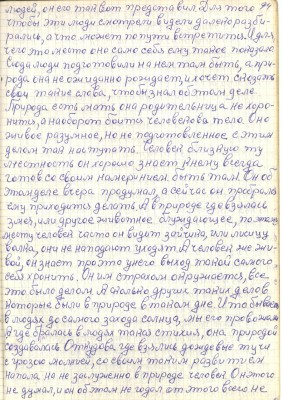 людей, он его так вот представил. Для того 94
чтобы эти люди смотрели видели далеко разби-
рались, а что может по пути встретится. И для
чего это место оно само себя ему такое показала
Сюда люди подготовили на нем там быть, а при-
рода она не ожиданно рождает, и хочет сказать
свои такие слова, чтобы знал об этом деле.
Природа есть мать она родительница не хоро-
нить, а наоборот быть человекова тело. Оно
живое разумное, но не подготовленное с этим
делом так наступать. Человек близкую ту
местность он хорошо знает, к нему всегда
готов со своим намерением быть там. Он об
этом деле вчера продумал, а сейчас он пробрался
ему приходится делать. А в природе где взялась
змея, или другое животное блуждающее, по этому
месту человек часто он видит зайчика, или лисицу
волка, они не нападают уходят. А человек же жи-
вой, он знает про это у него выход такой самого
себя хоронить. Он им страхом окружается, все
это было делом. А сколько других таких делов
которые были в природе в таком дне. И то бывает
в людях до самого захода солнца, мы его провожаем
А где бралась в людях такая стихия, она природой
создавалась. Откудова где взялись дождевые тучи
с грозою молнией, со своим таким развитием
напала не не заслуженно в природе человека. Он этого
не думал, и он об этом не гадал от этого всего не